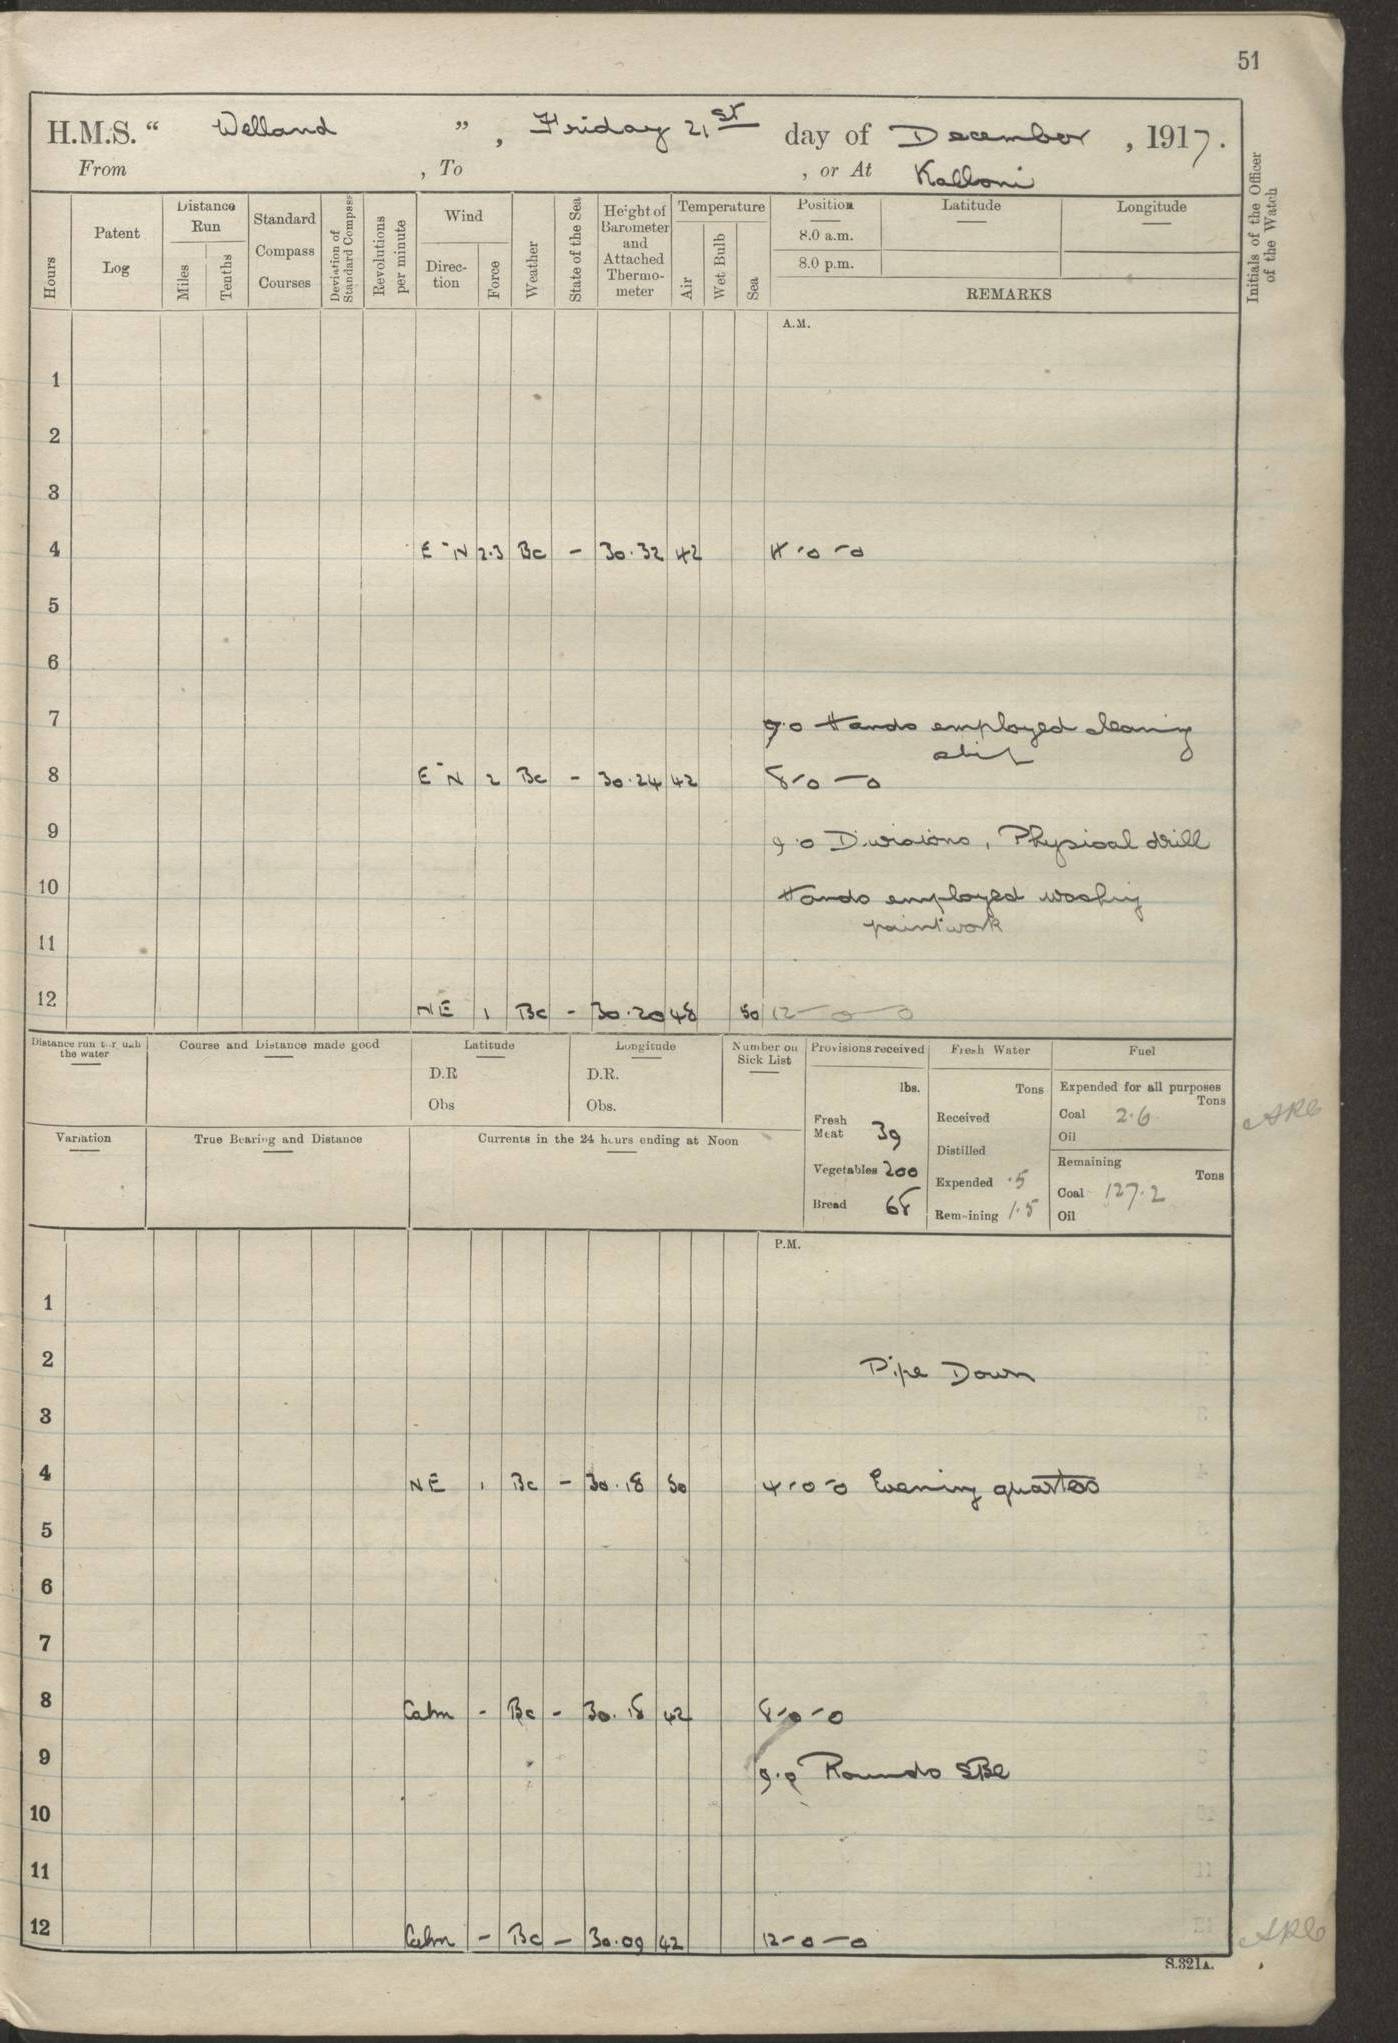 51
H.M.S. " Welland " , Friday 21st day of December , 1917.
From , To , or At Kalloni
Hours
Patent Log
Distance Run
Miles
Tenths
Standard Compass Courses
Deviation of Standard Compass
Revolutions per minute
Wind
Direction
Force
Weather
State of the Sea
Height of Barometer and Attached Thermometer
Temperature
Air
Wet Bulb
Sea
Position Latitude Longitude
8.0 a.m.
8.0 p.m.
REMARKS
Initials of the Officer of the Watch
A.M.
1
2
3
4 E - N 2.3 Bc - 30.32 42 4 - 0 - 0
5
6
7 7.0 Hands employed cleaning
ship
8 E - N 2 Bc - 30.24 42 8 - 0 - 0
9 9.0 Divisions, Physical drill
10 Hands employed washing
paintwork
11
12 NE 1 Bc - 30.20 48 50 12 - 0 - 0
Distance run through the water
Course and Distance made good
Latitude
D.R
Obs
Longitude
D.R.
Obs.
Number on Sick List
Provisions received
lbs.
Fresh Meat 39
Vegetables 200
Bread 68
Fresh Water
Tons
Received
Distilled
Expended .5
Remaining 1.5
Fuel
Expended for all purposes
Tons
Coal 2.6
Oil
Remaining
Tons
Coal 127.2
Oil
Variation
True Bearing and Distance
Currents in the 24 hours ending at Noon
P.M.
1
2 Pipe Down
3
4 NE 1 Bc - 30.18 50 4 - 0 - 0 Evening quarters
5
6
7
8 Calm - Bc - 30.18 42 8 - 0 - 0
9 9.0 Rounds
10
11
12 Calm - Bc - 30.09 42 12 - 0 - 0
S.321A.